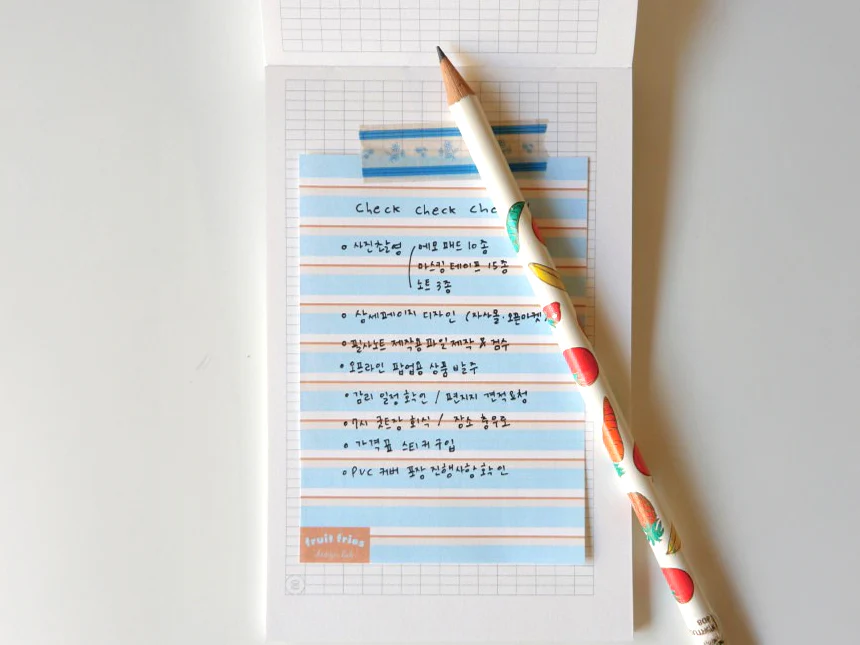 check check che
사진촬영 메모패드 10종
마스킹 테이프 15종
노트 3종
상세페이지 디자인 (자사몰·오픈마켓)
필사노트 제작용 파일 제작 & 검수
오프라인 팝업용 상품 발주
감리 일정확인 / 편지지 견적요청
7시 굿즈장 회식 / 장소 충무로
가격표 스티커 구입
PVC 커버 포장 진행사항 확인
fruit fries
design lab.